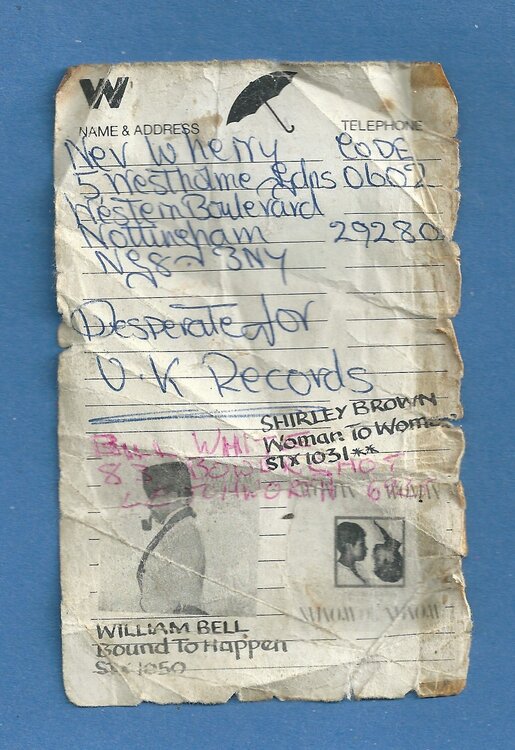 W
NAME & ADDRESS TELEPHONE
Nev Wherry CODE
5 Westholme Gdns 0602
Western Boulevard
Nottingham 29280
NG8 3NY
Desperate for
U.K Records
SHIRLEY BROWN
Woman To Woman
STX 1031**
BILL WHITE
8
WILLIAM BELL
Bound To Happen
STX 1050